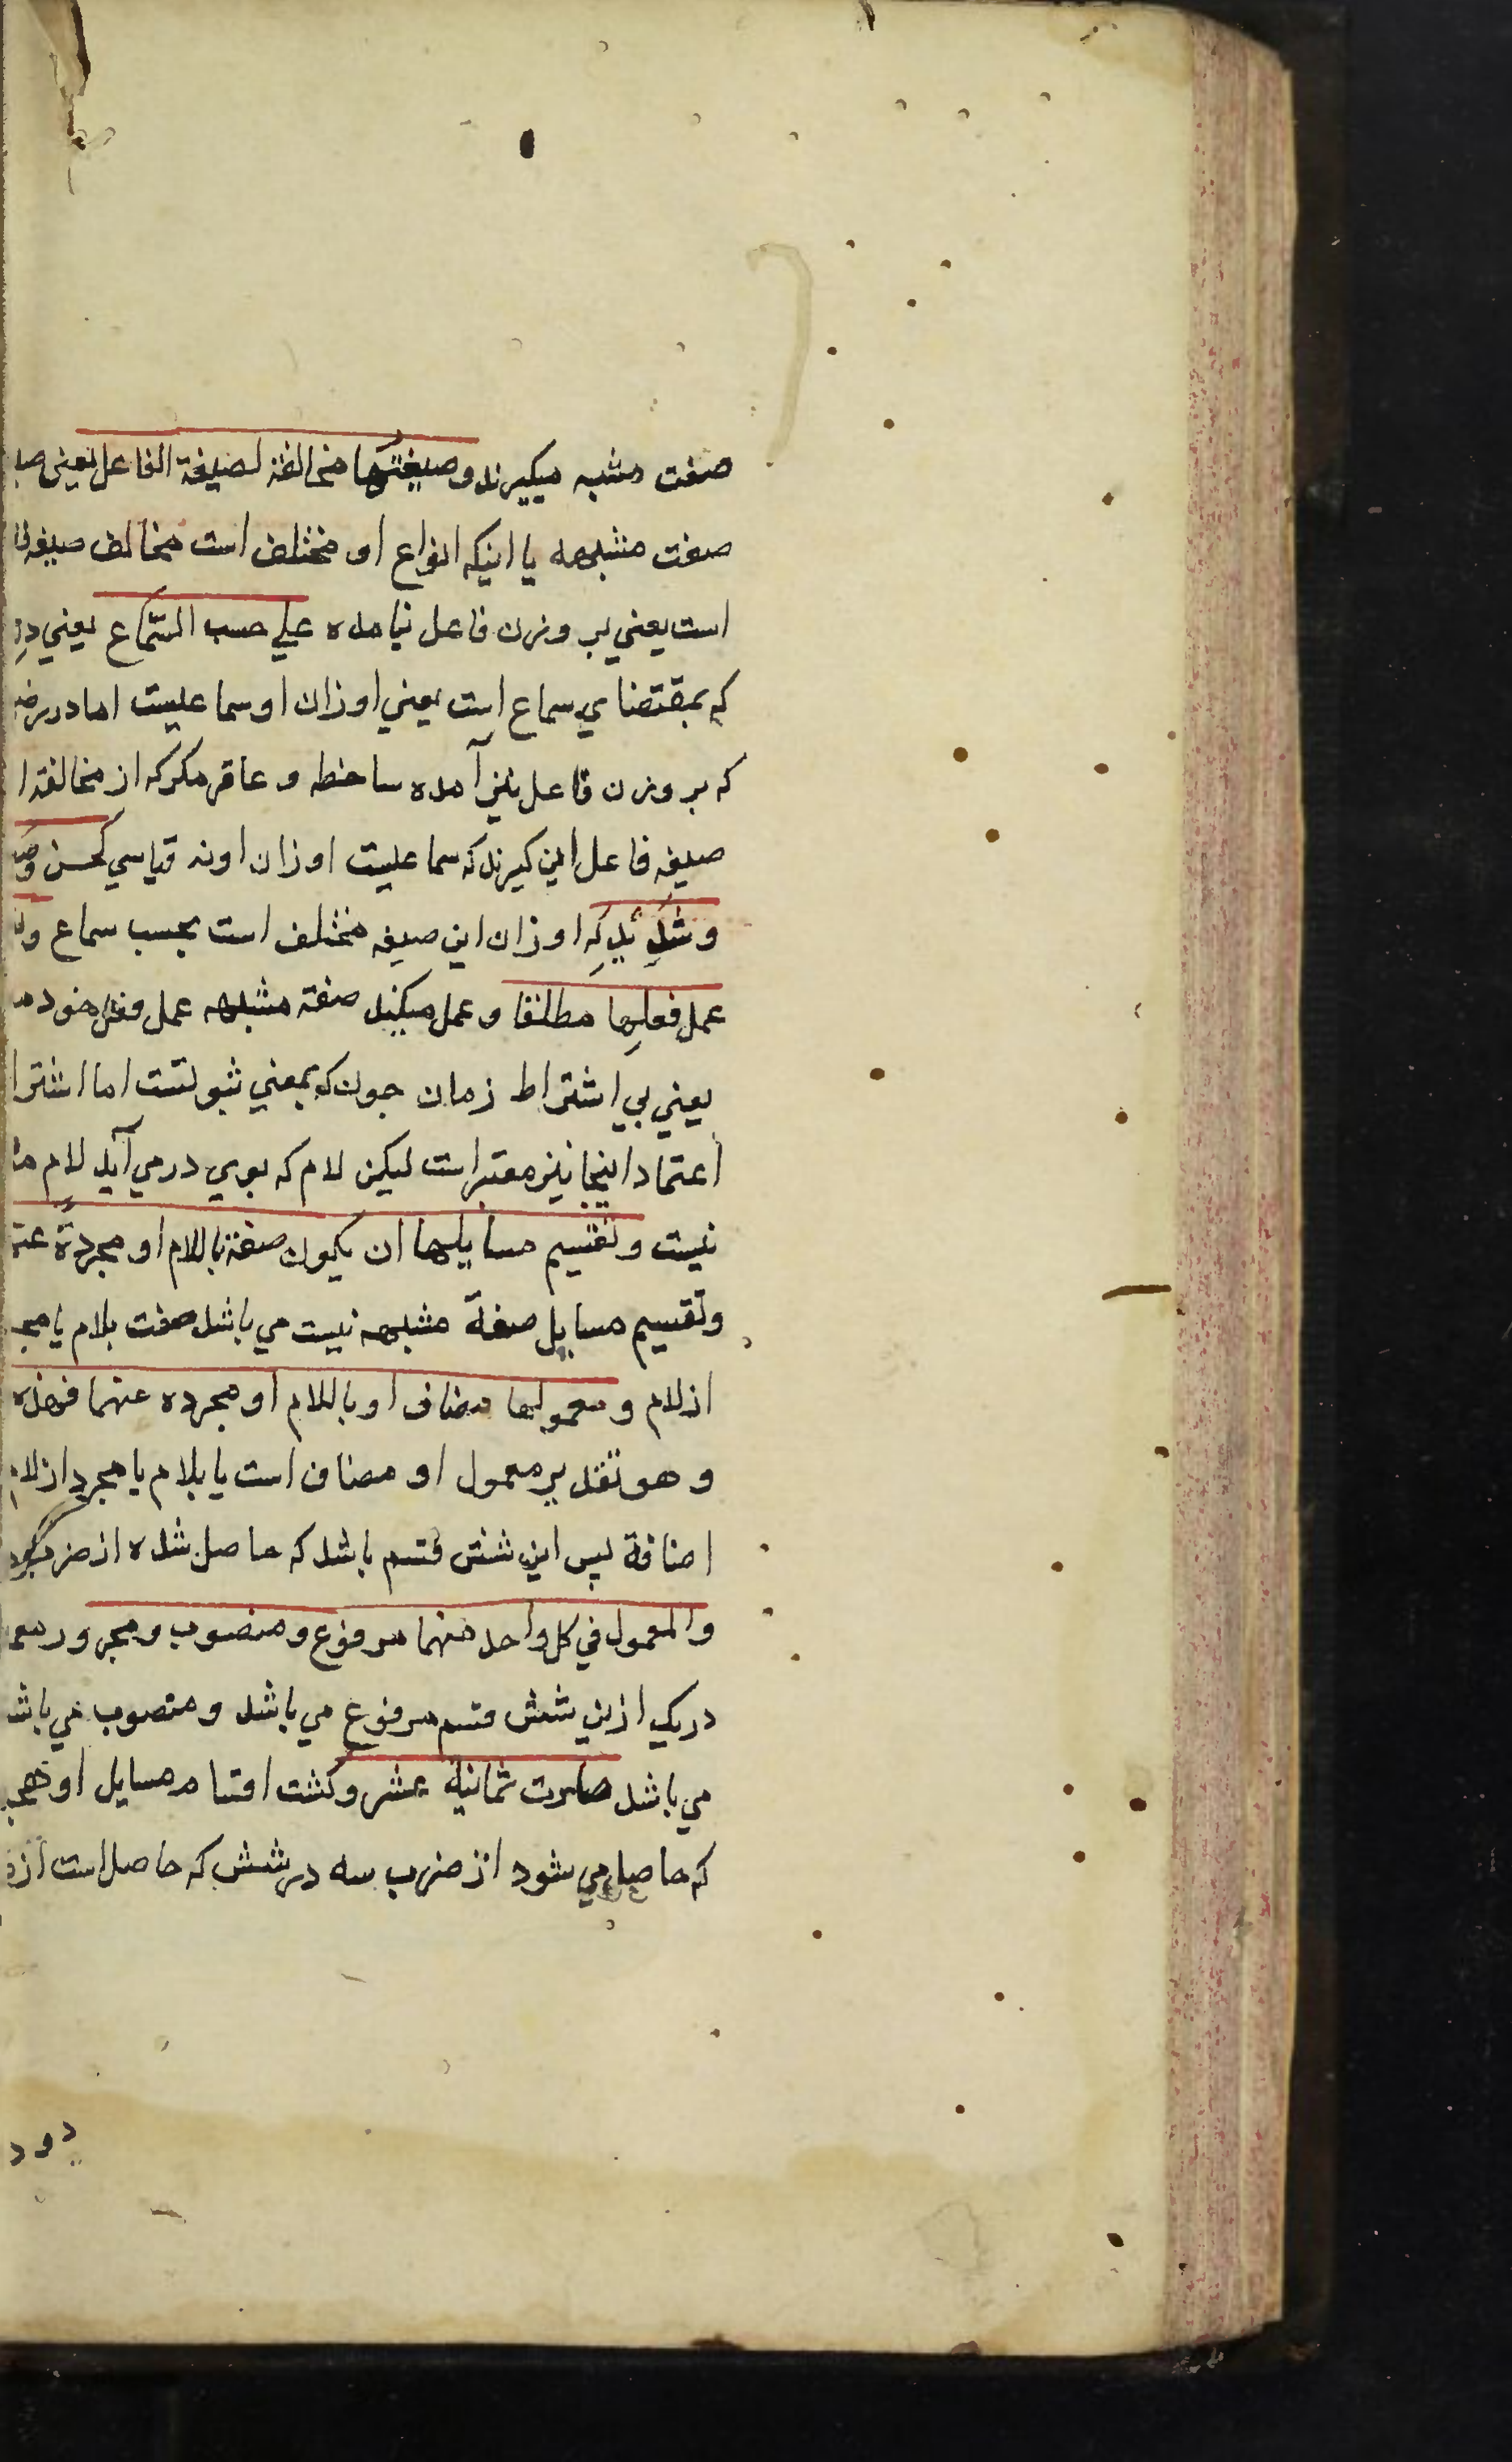 صفت مشبه میگیرند و صیغتها مخالفة لصیغة الفاعل یعنی
صفت مشبهه با اینکه انواع او مختلف است مخالف صیغه
است یعني بر وزن فاعل نیامده علي حسب السّماع یعني
که بمقتضاي سماع است یعني اوزان او سماعیست اما در
که بر وزن فاعل نیز آمده ساخط و عاقر مکر که از مخالفة
صیغه فاعل این کیرند که سماعیست اوزان او نه قیاسي کحسن
و شدید که اوزان این صیغه مختلف است بحسب سماع
عمل فعلها مطلقا و عمل میکند صفة مشبهه عمل فعل خود
یعني بي اشتراط زمان جون که بمعني ثبوتست اما اشترا
اعتماد اینجا نیز معتبر است لیکن لام که بوي در مي آید لام
نیست و تقسیم مسایلها ان یکون صفة باللام او مجردة
و تقسیم مسایل صفة مشبهه نیست مي باشد صفت بلام یا
از لام و معمولها مضاف او باللام او مجرده عنهما فهذه
و هو تقدیر معمول او مضاف است یا بلام یا مجرد از لام
اضافة پس این شش قسم باشد که حاصل شده از ضرب
والمعمول في کل واحد منهما مرفوع و منصوب و مجرور
در یک ازین شش قسم مرفوع مي باشد و منصوب مي باشد
مي باشد صارت ثمانیة عشر و کشت اقسام مسایل او
که حاصل مي شود از ضرب سه در شش که حاصل است از